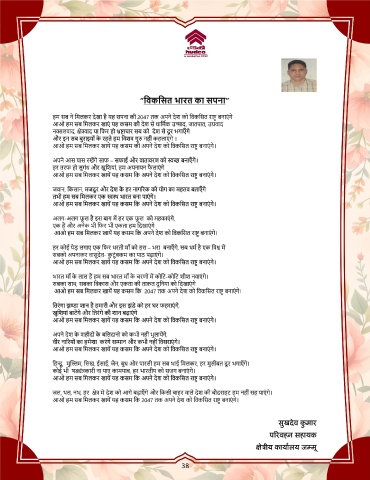 hudco
"विकसित भारत का सपना"
हम सब ने मिलकर देखा है यह सपना की 2047 तक अपने देश को विकसित राष्ट्र बनाएंगे
आओ हम सब मिलकर खाएं यह कसम की देश से धार्मिक उन्माद, जातपात, उग्रवाद
नक्सलवाद, क्षेत्रवाद या फिर हो भ्रष्टाचार सब को देश से दूर भगाएँगे
और इन सब बुराइयों के रहते हम विश्व गुरु नहीं कहलाएंगे ।
आओ हम सब मिलकर खायें यह कसम की अपने देश को विकसित राष्ट्र बनाएंगे।
अपने आस पास रखेंगे साफ - सफाई और वातावरण को स्वच्छ बनाएँगे।
हर तरफ हो सुगंध और खुशियां, हम अपनापन फैलाएंगे
आओ हम सब मिलकर खायें यह कसम कि अपने देश को विकसित राष्ट्र बनाएंगे।
जवान, किसान, मजदूर और देश के हर नागरिक को योग का महत्व बताएँगे
तभी हम सब मिलकर एक स्वस्थ भारत बना पाएंगे।
आओ हम सब मिलकर खायें यह कसम कि अपने देश को विकसित राष्ट्र बनाएंगे।
अलग-अलग फूल हैं इस बाग में हर एक फूल को महकाएंगे,
एक हैं और अनेक भी फिर भी एकता हम दिखाएंगे
आओ हम सब मिलकर खायें यह कसम कि अपने देश को विकसित राष्ट्र बनाएंगे।
हर कोई पेड़ लगाए एक फिर धरती माँ को हरा – भरा बनाएँगे, सब धर्म है एक विश्व में
सबको अपनाकर वासुदेव- कुटुंबकम का पाठ पढ़ाएंगे।
आओ हम सब मिलकर खायें यह कसम कि अपने देश को विकसित राष्ट्र बनाएंगे।
भारत माँ के लाल हैं हम सब भारत माँ के चरणों में कोटि-कोटि शीश नवाएंगे।
सबका साथ, सबका विकास और एकता की ताकत दुनिया को दिखाएंगे
आओ हम सब मिलकर खायें यह कसम कि 2047 तक अपने देश को विकसित राष्ट्र बनाएंगे।
तिरंगा झण्डा शान है हमारी और इस झंडे को हर घर फहराएंगे,
खुशियां बाटेंगे और तिरंगे की शान बढ़ाएंगे
आओ हम सब मिलकर खायें यह कसम कि अपने देश को विकसित राष्ट्र बनाएंगे।
अपने देश के शहीदों के बलिदानों को कभी नहीं भूलाएंगे,
वीर नारियों का हमेशा करेंगे सम्मान और कभी नहीं बिसराएंगे।
आओ हम सब मिलकर खायें यह कसम कि अपने देश को विकसित राष्ट्र बनाएंगे।
हिन्दू, मुस्लिम, सिख, ईसाई, जैन, बुध और पारसी हम सब भाई मिलकर, हर मुसीबत दूर भगाएँगे।
कोई भी षड्यंत्रकारी ना पाए कामयाब, हर भारतीय को सजग बनाएंगे।
आओ हम सब मिलकर खायें यह कसम कि अपने देश को विकसित राष्ट्र बनाएंगे।
जल, थल, नभ, हर क्षेत्र में देश को आगे बढ़ाएँगे और किसी बाहर वाले देश की चौधराहट हम नहीं सह पाएंगे।
आओ हम सब मिलकर खायें यह कसम कि 2047 तक अपने देश को विकसित राष्ट्र बनाएंगे।
सुखदेव कुमार
परिवहन सहायक
क्षेत्रीय कार्यालय जम्मू
38